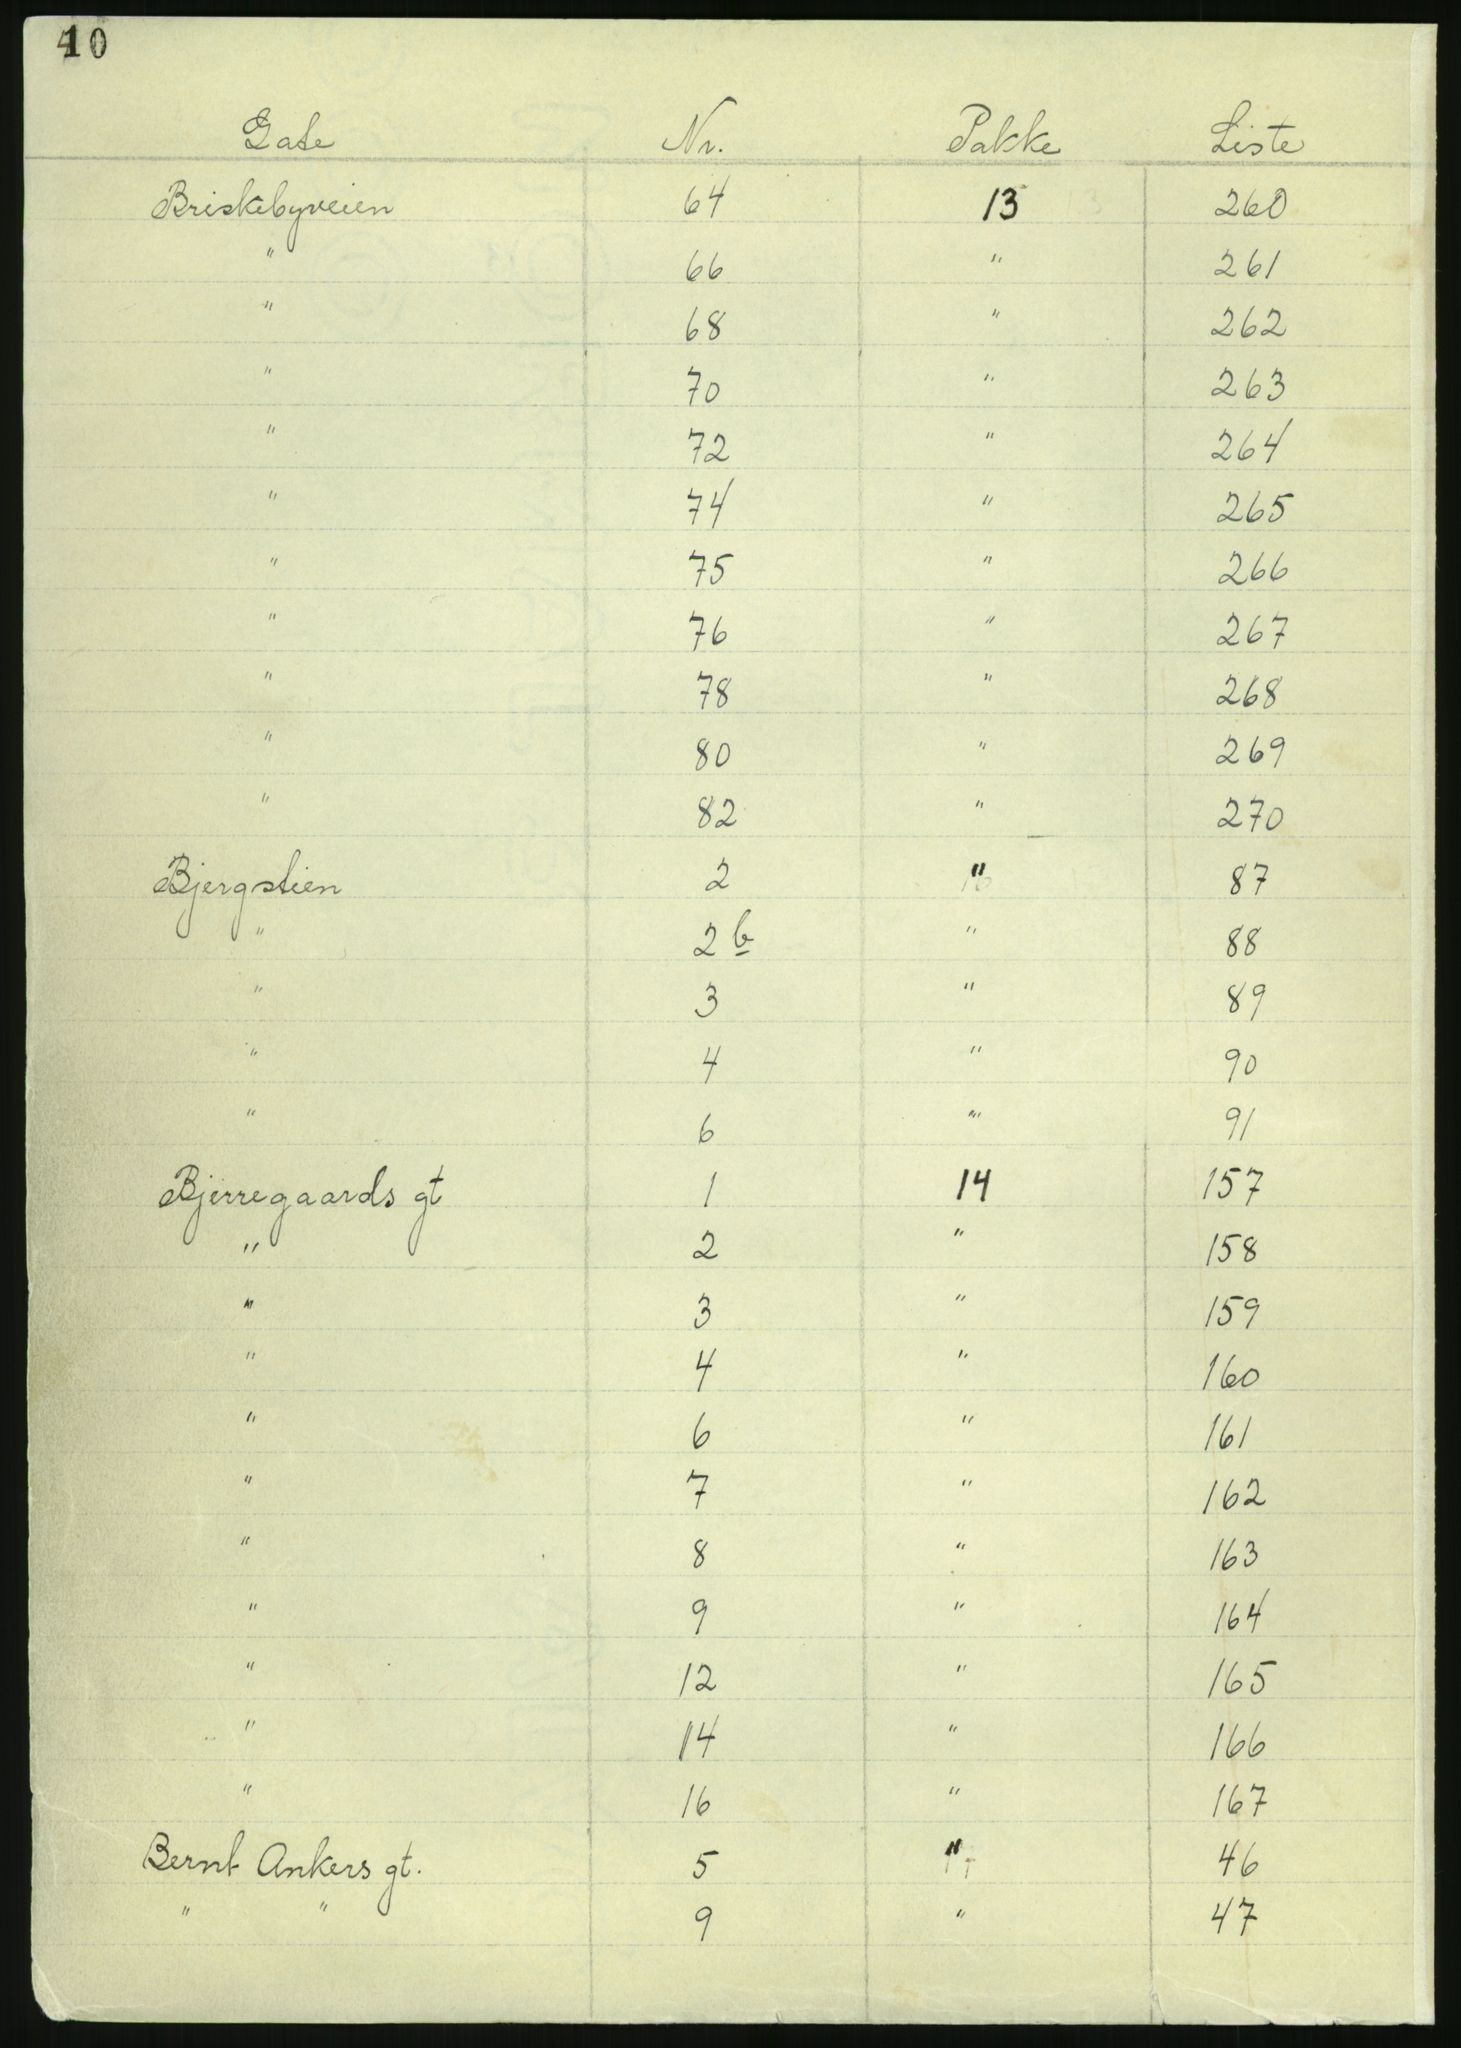 40
Gate Nr. Pakke Liste
Briskebyveien 64 13 260
" 66 " 261
" 68 " 262
" 70 " 263
" 72 " 264
" 74 " 265
" 75 " 266
" 76 " 267
" 78 " 268
" 80 " 269
" 82 " 270
Bjergstien 2 " 87
" 2 b " 88
" 3 " 89
" 4 " 90
" 6 " 91
Bjerregaards gt 1 14 157
" 2 " 158
" 3 " 159
" 4 " 160
" 6 " 161
" 7 " 162
" 8 " 163
" 9 " 164
" 12 " 165
" 14 " 166
" 16 " 167
Bernt Ankers gt. 5 " 46
" " 9 " 47